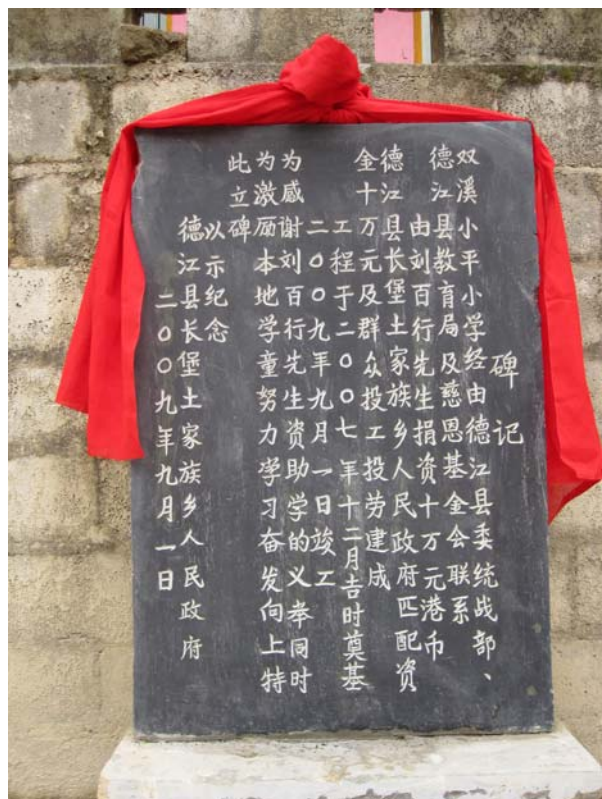 碑记
双溪小平小学经由德江县委统战部、
德江县教育局及慈恩基金会联系
由刘百行先生捐资十万元港币
德江县长堡土家族乡人民政府匹配资
金十万元及群众投工投劳建成
工程于二〇〇七年十二月吉时奠基
二〇〇九年九月一日竣工
为感谢刘百行先生资助学的义举同时
为激励本地学童努力学习奋发向上特
此立碑
以示纪念
德江县长堡土家族乡人民政府
二〇〇九年九月一日